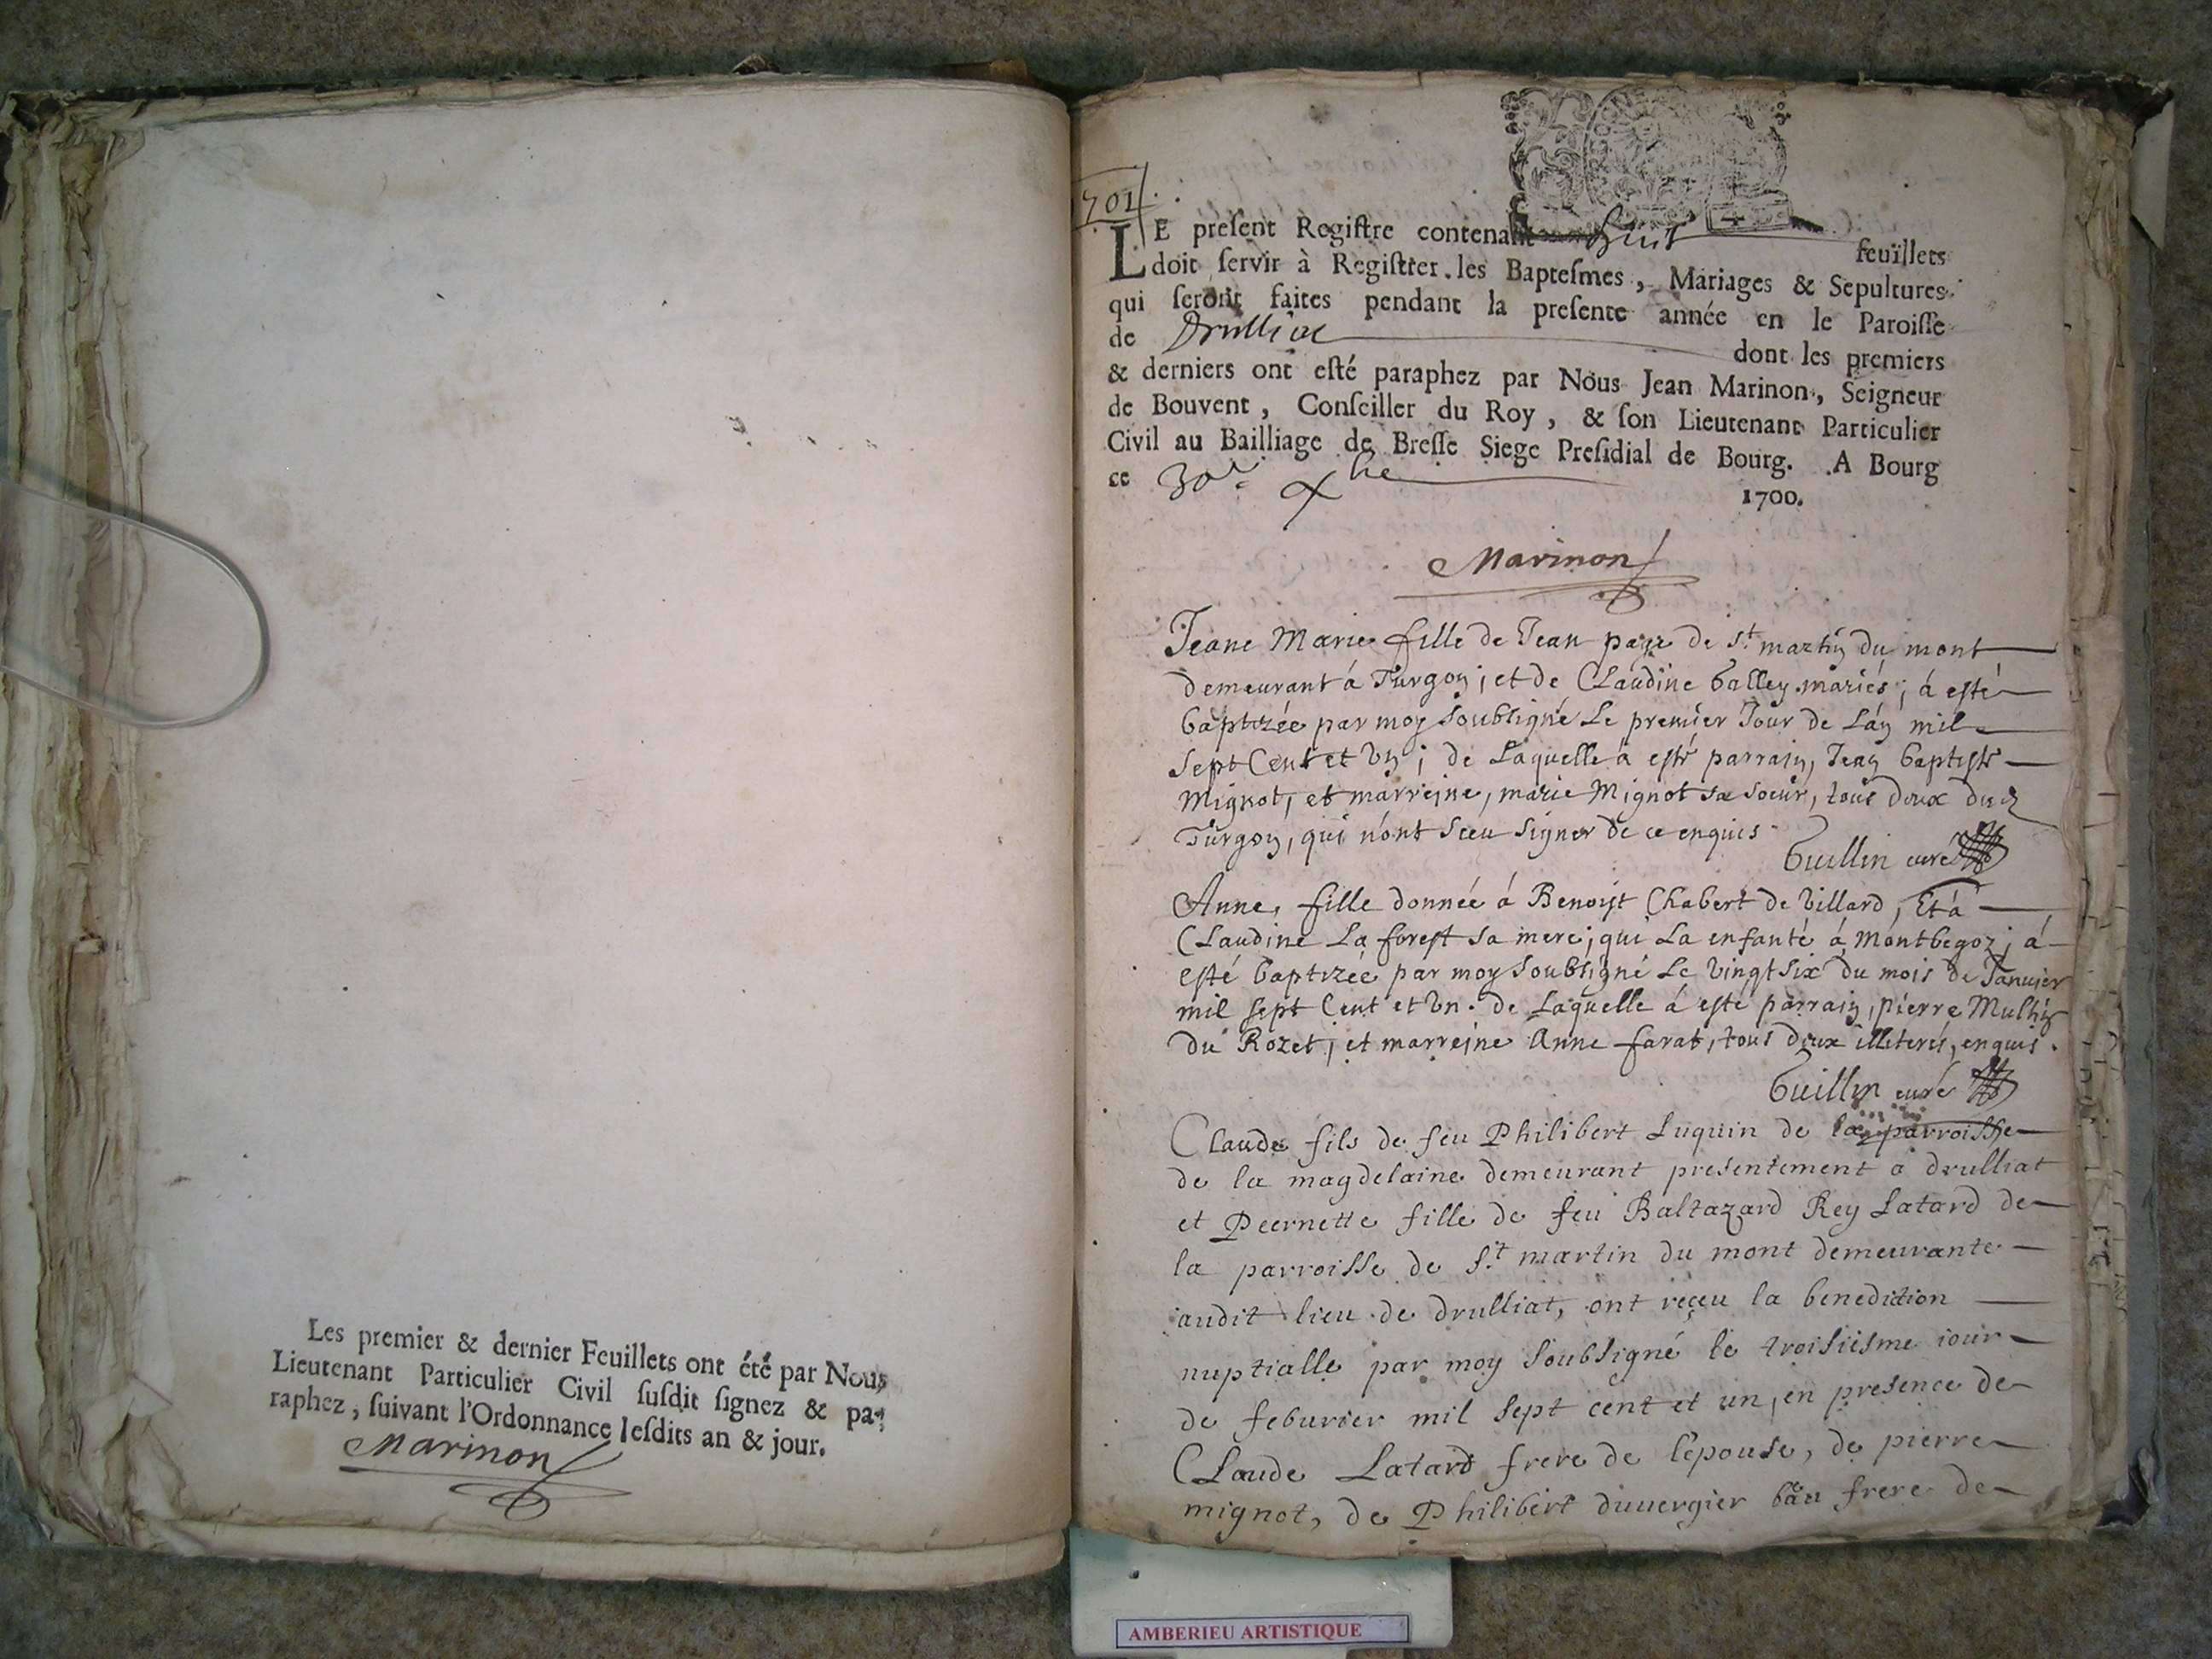 Les premier & dernier Feuillets ont été par Nous
Lieutenant Particulier Civil susdit signez & pa-
raphez, suivant l'Ordonnance lesdits an & jour.
Marinon
1701
LE present Registre contenant huit feuillets
doit servir à Registrer les Baptesmes, Mariages & Sepultures
qui seront faites pendant la presente année en le Paroisse
de Drulliat dont les premiers
& derniers ont esté paraphez par Nous Jean Marinon, Seigneur
de Bouvent, Conseiller du Roy, & son Lieutenant Particulier
Civil au Bailliage de Bresse Siege Presidial de Bourg. A Bourg
ce 30e xbre 1700.
Marinon
Jeane Marie fille de Jean page de St martin du mont
demeurant á Turgon; et de Claudineballey mariés; á esté
baptizée par moy soubsigné Le premier Jour de Lán mil
Sept Cent et Vn; de Laquelle á esté parrain, Jean baptiste
Mignot, et marreine, marie Mignot sa soeur, tous deux dud
Turgon, qui n'ont sceu signer de ce enquis
Guillin curé
Anne, fille donnée á Benoist Chabert de Villard, Et á
Claudine La forest sa mere; qui La enfanté á Montbegoz; á
esté baptizée par moy soubsigné Le vingt six du mois de Januier
mil sept Cent et Vn. de Laquelle á esté parrain, pierre Muthin
du Rozet; et marreine Anne farat, tous deux illiterés, enquis.
Guillin curé
Claude fils de feu Philibert Luquin de la parroisse
de la magdelaine demeurant presentement a drulliat
et Peernette fille de feu Baltazard Rey Latard de
la parroisse de St martin du mont demeurante
audit lieu de drulliat, ont reçeu la benediction
nuptialle par moy soubsigné le troisiesme iour
de feburier mil sept cent et un, en presence de
Claude Latard frere de l'epouse, de pierre
mignot, de Philibert duuergier bau frere de
AMBERIEU ARTISTIQUE